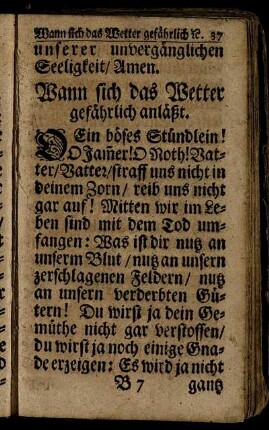 Wann sich das Wetter gefährlich ꝛc. 37
unserer unvergänglichen
Seeligkeit/ Amen.
Wann sich das Wetter
gefährlich anläßt.
O Ein böses Stündlein!
O Jam̃er! O Noth! Vat-
ter/Vatter/straff uns nicht in
deinem Zorn/ reib uns nicht
gar auf! Mitten wir im Le-
ben sind mit dem Tod um-
fangen: Was ist dir nutz an
unserm Blut/ nutz an unsern
zerschlagenen Feldern/ nutz
an unsern verderbten Gü-
tern! Du wirst ja dein Ge-
müthe nicht gar verstossen/
du wirst ja noch einige Gna-
de erzeigen: Es wird ja nicht
B 7 gantz